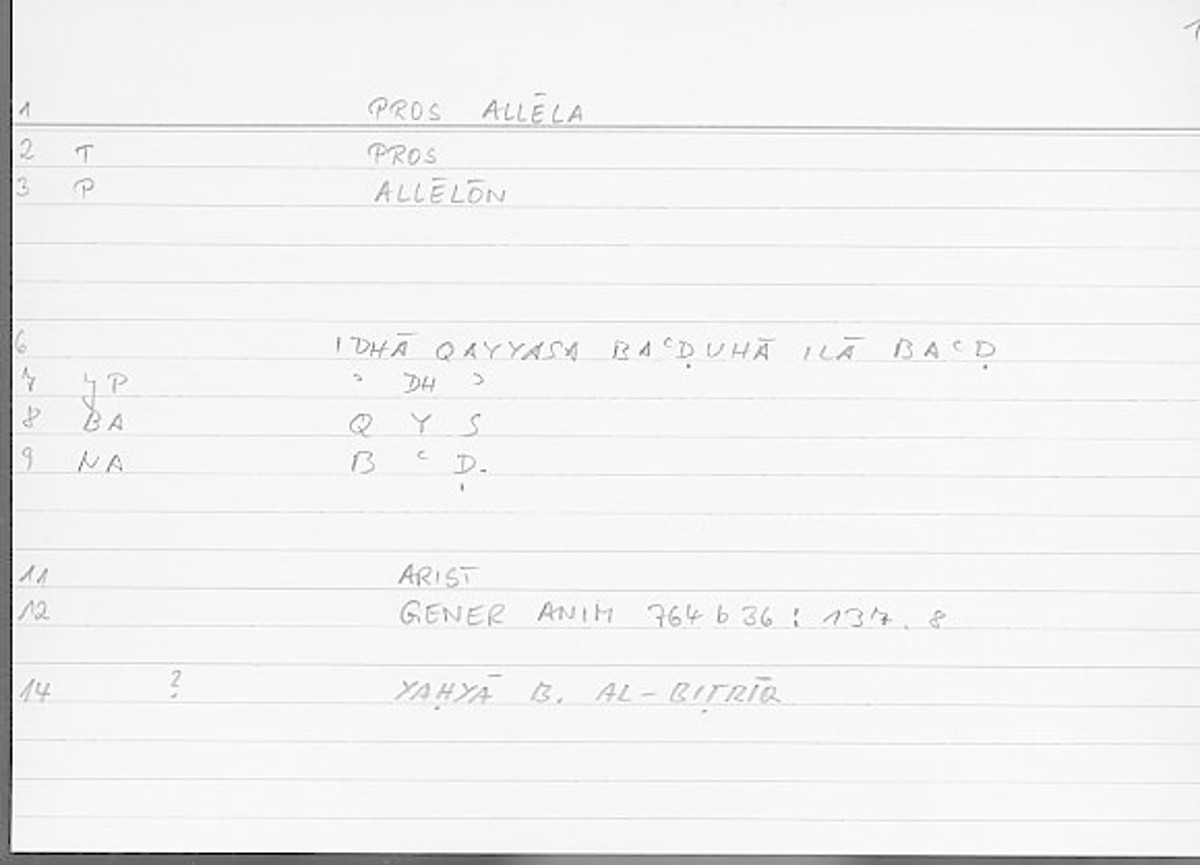 1
1 PROS ALLĒLA
2 T PROS
3 P ALLĒLŌN
6 IDHĀ QAYYASA BAʿḌUHĀ ILĀ BAʿḌ
7 YP ʾ DH ʾ
8 BA Q Y S
9 NA B ʿ Ḍ.
11 ARIST
12 GENER ANIM 764 b 36 : 137.8
14 ? YAḤYĀ B. AL-BIṬRĪQ